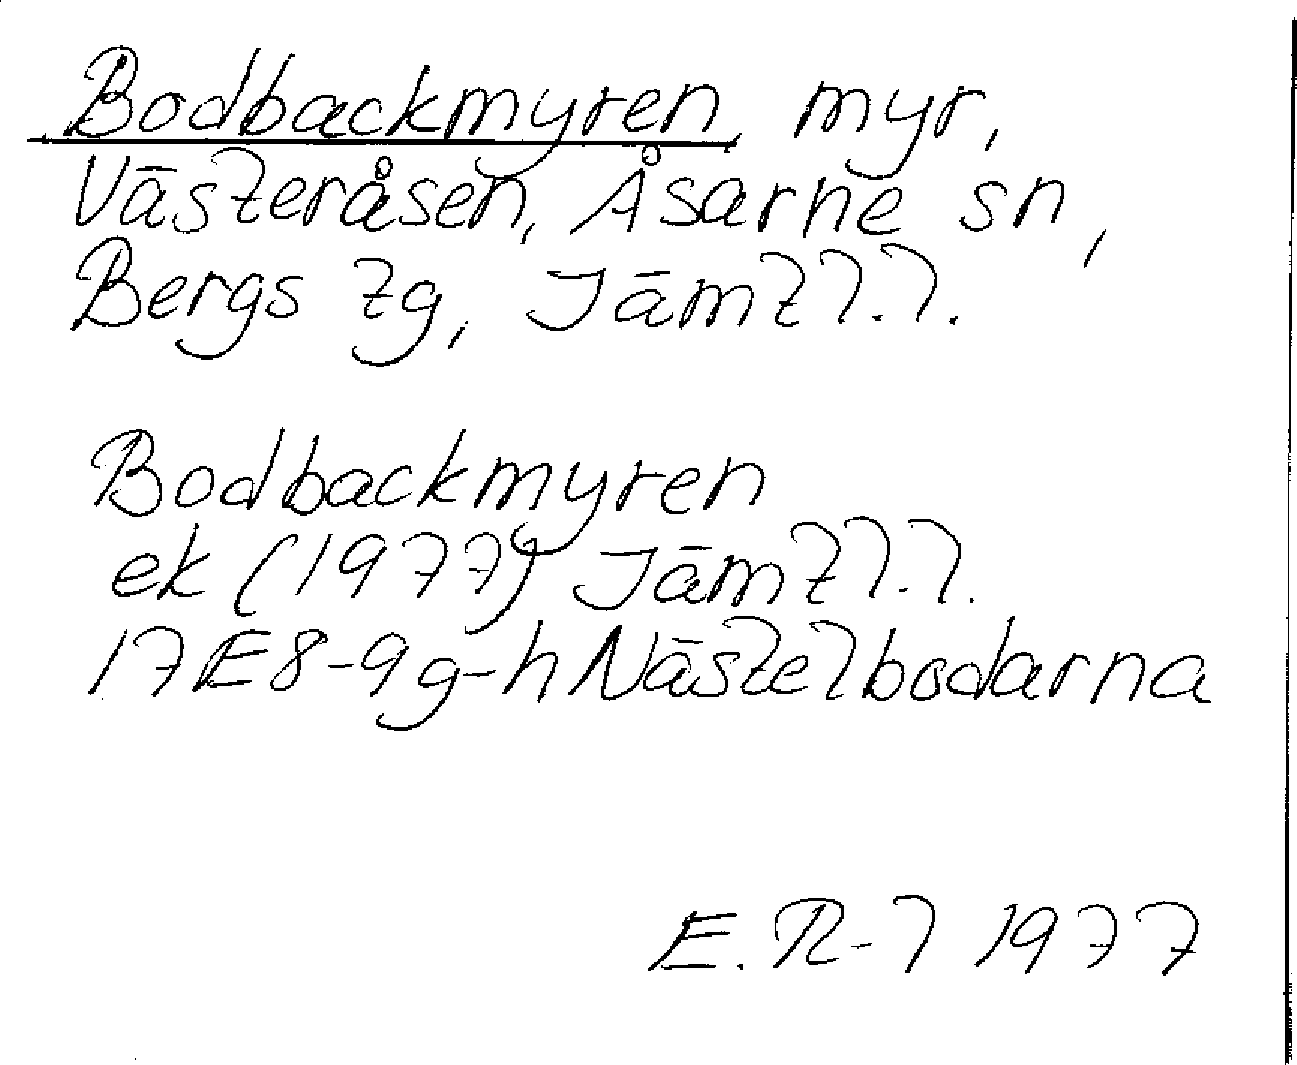 Bodbackmyren, myr,
Västeråsen, Åsarne sn,
Bergs tg, Jämtl.l.
Bodbackmyren
ek (1977) Jämtl.l.
17E8-9g-h Nästelbodarna
E. R-l 1977